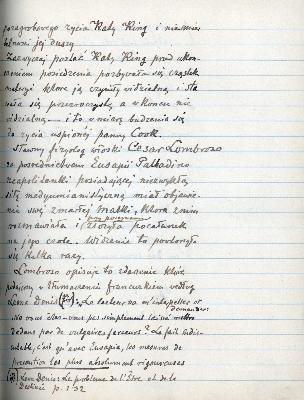 pozagrobowego życia Katy King i nieśmier
telności jej duszy.
Zazwyczaj postać Katy King przed ukoń-
czeniem posiedzenia pozbywała się cząstek
materyi które ją czyniły widzialną i sta
wała się przezroczystą a w końcu nie
widzialną — i to w miarę budzenia się
do życia uśpionej panny Cook.
Sławny fizyolog włoski Cesar Lombroso
za pośrednictwem Eusapii Palladino
neapolitanki posiadającej niezwykłą
siłę medyumianistyczną miał objawie-
nie swej zmarłej Matki, która z nim
rozmawiała i złożyła pocałunek
na jego czole. Widzenie to powtórzyło
się kilka razy.
Lombroso opisuje to zdarzenie które
podajemy w tłumaczeniu francuskiem według
Léon Denis: "Le lecteur va m'interpeller et
demander
N'avez-vous pas simplement été mis
dedans par de vulgaires farceurs? Le fait indis-
cutable, c'est qu'avec Eusapia, les mesures de
precaution les plus absolument rigoureuses
Léon Denis: Le probleme de l'Être et de la
Destinée p. 132